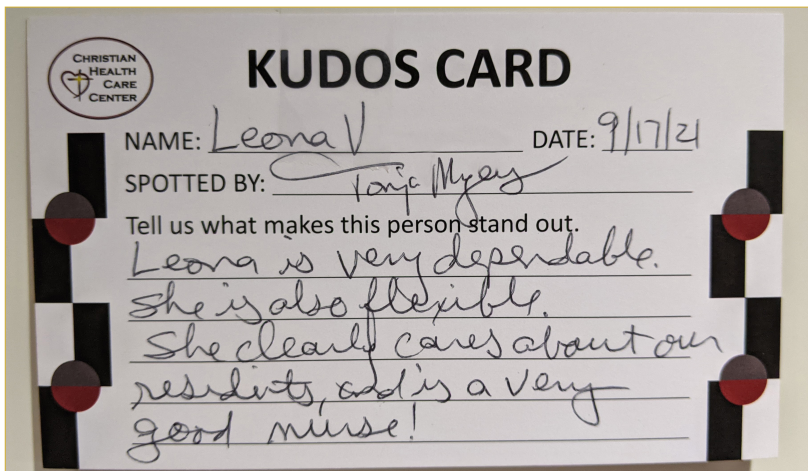 CHRISTIAN
HEALTH
CARE
CENTER
KUDOS CARD
NAME: Leona V DATE: 9/17/21
SPOTTED BY: Tonja
Tell us what makes this person stand out.
Leona is very dependable.
She is also flexible.
She clearly cares about our
residents, and is a very
good nurse!